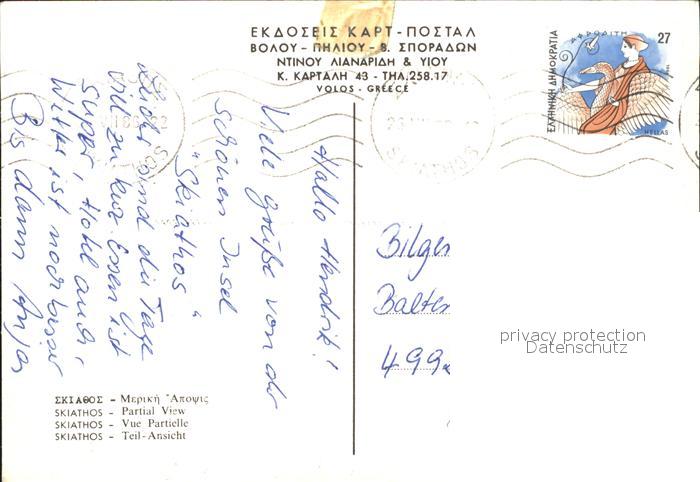 ΕΚΔΟΣΕΙΣ ΚΑΡΤ - ΠΟΣΤΑΛ
ΒΟΛΟΥ - ΠΗΛΙΟΥ - Β. ΣΠΟΡΑΔΩΝ
ΝΤΙΝΟΥ ΛΙΑΝΑΡΙΔΗ & ΥΙΟΥ
Κ. ΚΑΡΤΑΛΗ 43 - ΤΗΛ. 258.17
VOLOS - GREECE
ΕΛΛΗΝΙΚΗ ΔΗΜΟΚΡΑΤΙΑ
ΑΦΡΟΔΙΤΗ
27
HELLAS
SKIATHOS
Hallo Hendrik!
Viele Grüße von der
schönen Insel
"Skiathos"
Leider sind die Tage
viel zu kurz. Essen ist
super, Hotel auch,
Wetter ist noch besser
Bis dann Anja
Bilger
Balter
499
privacy protection
Datenschutz
ΣΚΙΑΘΟΣ - Μερική Ἄποψις
SKIATHOS - Partial View
SKIATHOS - Vue Partielle
SKIATHOS - Teil-Ansicht